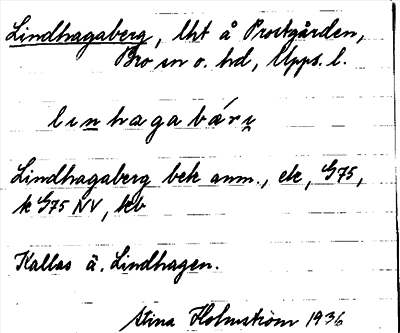 Lindhagaberg, lht å Prostgården,
Bro sn o. hd, Upps. l.
linhagabárị
Lindhagaberg bek anm., ek, G75,
k G75 NV, kb
Kallas ä. Lindhagen.
Stina Holmström 1936